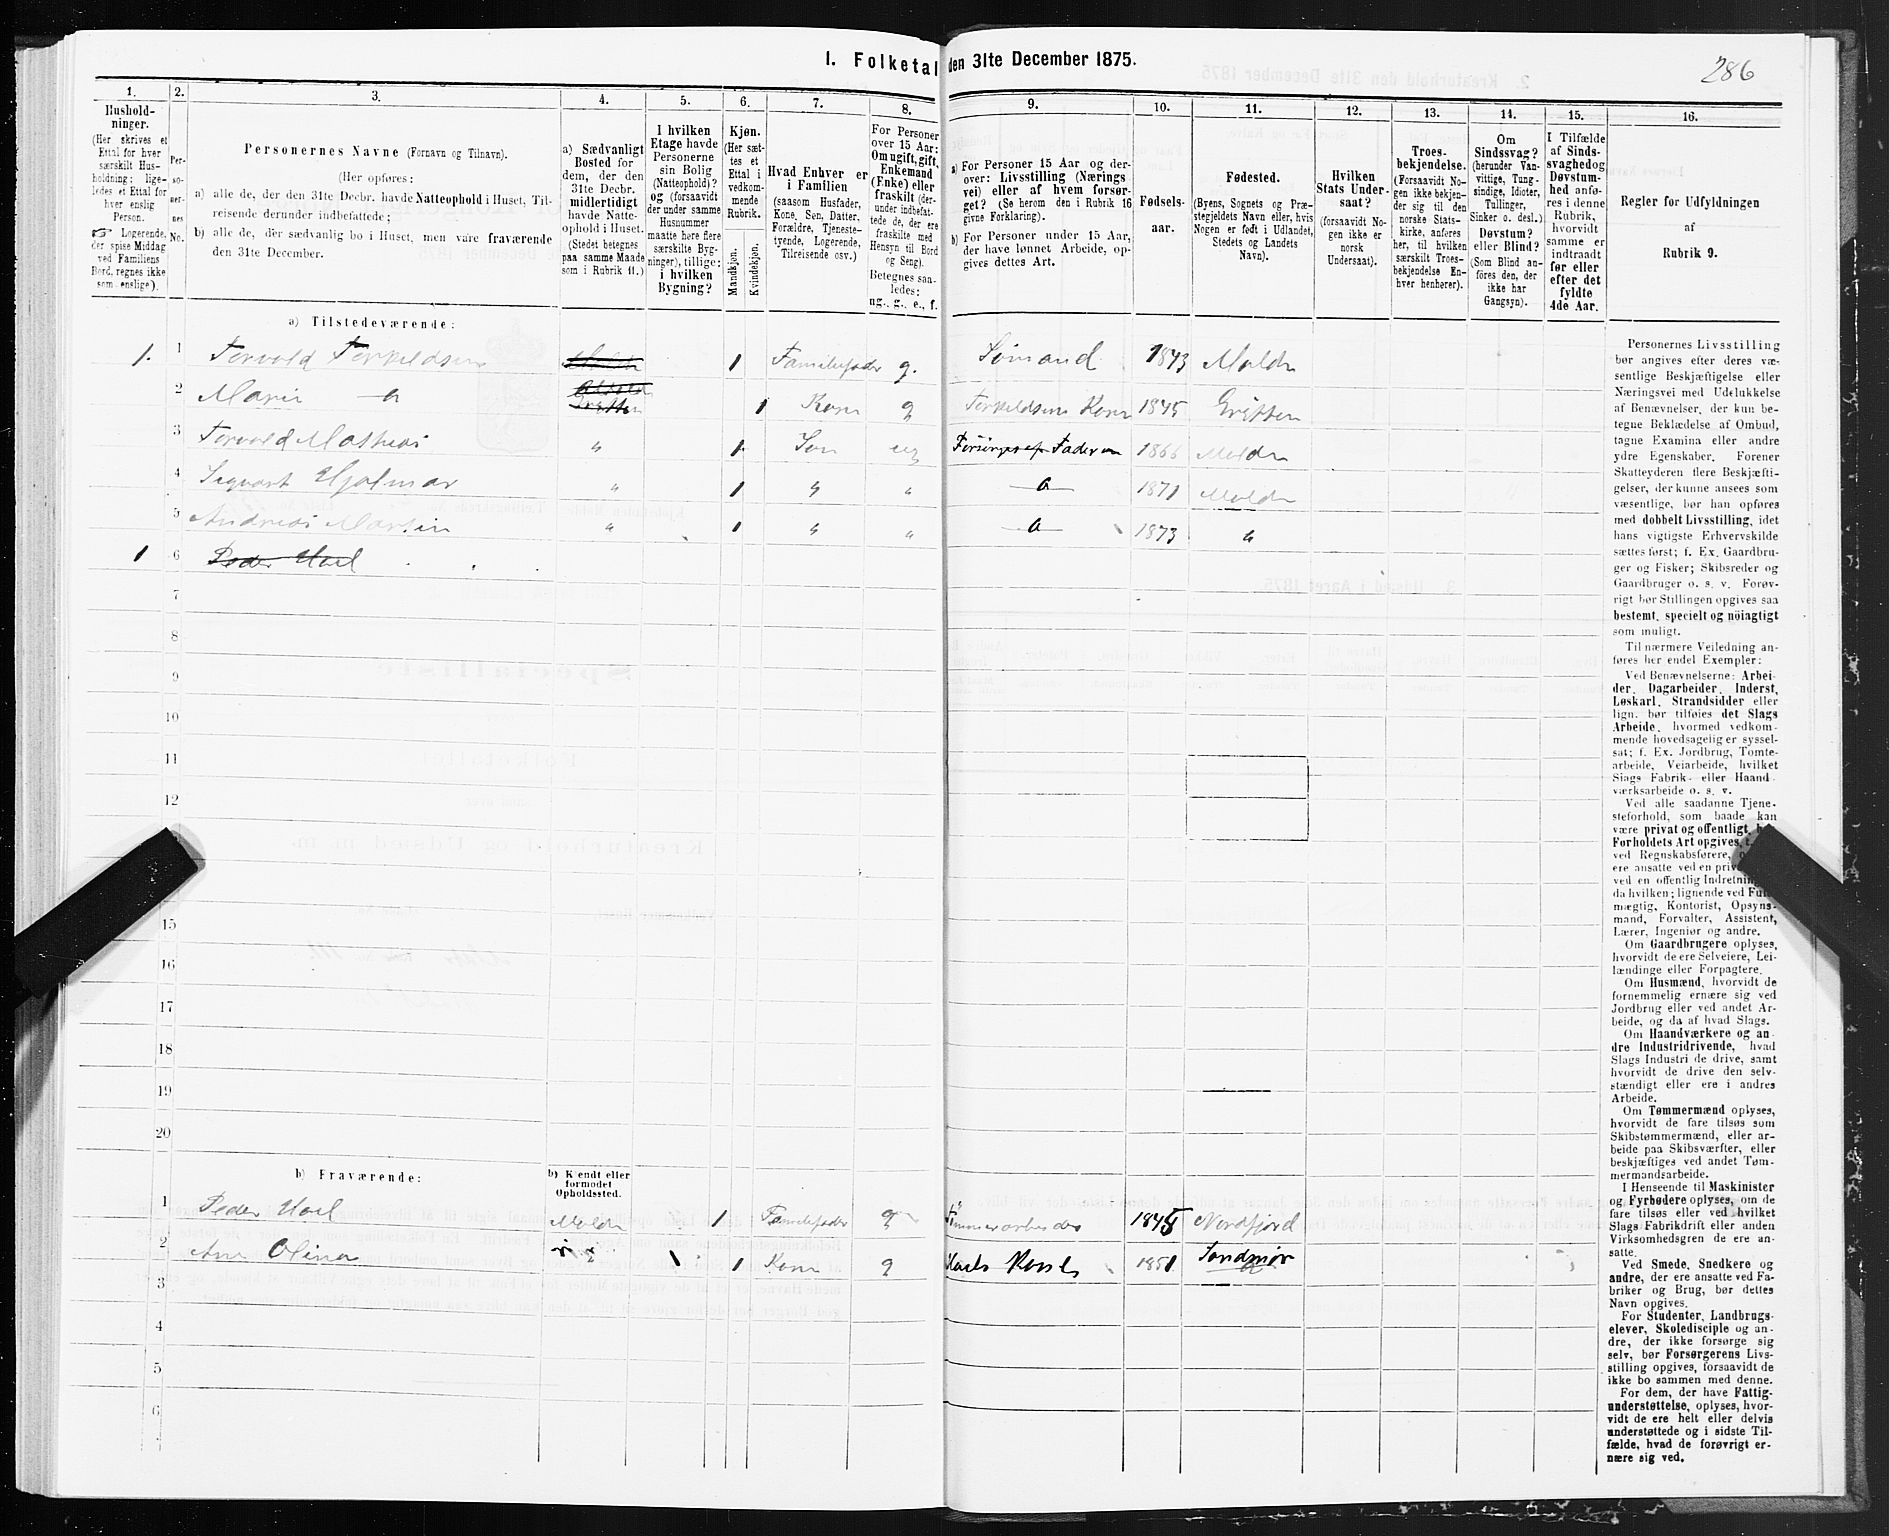 I. Folketal den 31te December 1875.
286
1.
Hushold-
ninger.
(Her skrives et
Ettal for hver
særskilt Hus-
holdning; lige-
ledes et Ettal for
hver enslig
Person.
Logerende,
der spise Middag
ved Familiens
Bord, regnes ikke
som enslige).
2.
Per-
so-
ner-
nes
No.
3.
Personernes Navne (Fornavn og Tilnavn).
(Her opføres:
a) alle de, der den 31te Decbr. havde Natteophold i Huset, Til-
reisende derunder indbefattede;
b) alle de, der sædvanlig bo i Huset, men vare fraværende
den 31te December.
4.
a) Sædvanligt
Bosted for
dem, der den
31te Decbr.
midlertidigt
havde Natte-
ophold i Huset.
(Stedet betegnes
paa samme Maade
som i Rubrik 11.)
5.
I hvilken
Etage havde
Personerne
sin Bolig
(Natteophold)?
og (forsaavidt
der under samme
Husnummer
maatte høre flere
særskilte Byg-
ninger), tillige:
i hvilken
Bygning?
6.
Kjøn.
(Her sæt-
tes et
Ettal i
vedkom-
mende
Rubrik.
Mandkjøn.
Kvindekjøn.
7.
Hvad Enhver er
i Familien
(saasom Husfader,
Kone, Søn, Datter,
Forældre, Tjeneste-
tyende, Logerende,
Tilreisende osv.)
8.
For Personer
over 15 Aar:
Om ugift, gift,
Enkemand
(Enke) eller
fraskilt (der-
under indbefat-
tede de, der ere
fraskilte med
Hensyn til Bord
og Seng).
Betegnes saa-
ledes:
ug., g., e., f.
9.
a) For Personer 15 Aar og der-
over: Livsstilling (Nærings
vei) eller af hvem forsør-
get? (Se herom den i Rubrik 16
givne Forklaring).
b) For Personer under 15 Aar,
der have lønnet Arbeide, op-
gives dettes Art.
10.
Fødsels-
aar.
11.
Fødested.
(Byens, Sognets og Præ-
stegjeldets Navn eller, hvis
Nogen er født i Udlandet,
Stedets og Landets
Navn).
12.
Hvilken
Stats Under-
saat?
(forsaavidt No-
gen ikke er
norsk
Undersaat).
13.
Troes-
bekjendelse.
(Forsaavidt No-
gen ikke bekjen-
der sig til den
norske Stats-
kirke, anføres
her, til hvilken
særskilt Troes-
bekjendelse En-
hver henhører).
14.
Om
Sindssvag?
(herunder Van-
vittige, Tung-
sindige, Idioter,
Tullinger,
Sinker o. desl.)
Døvstum?
eller Blind?
(Som Blind an-
føres den, der
ikke har
Gangsyn).
15.
I Tilfælde
af Sinds-
svaghed og
Døvstum-
hed anfø-
res i denne
Rubrik,
hvorvidt
samme er
indtraadt
før eller
efter det
fyldte
4de Aar.
16.
Regler for Udfyldningen
af
Rubrik 9.
a) Tilstedeværende:
1. 1 Torvald Torkildsen 1 Familiefader g. Sømand 1843 Molde
2 Marie 1 Kone g Torkildsens Kone 1845 Grytten
3 Torvald Mathias „ 1 Søn ug Forsørges af Faderen 1866 Molde
4 Sigvart Hjalmar „ 1 „ „ 1871 Molde
5 Andreas Martin „ 1 „ „ 1873 „
1 6 Peder
7
8
9
10
11
12
15
16
17
18
19
20
b) Fraværende:
b) Kjendt eller
formodet
Opholdssted.
1 Peder Molde 1 Familiefader g Nordfjord
2 Ane Olina 1 Kone g Hans Kone 1851 Søndmør
3
4
5
6
Personernes Livsstilling
bør angives efter deres væ-
sentlige Beskjæftigelse eller
Næringsvei med Udelukkelse
af Benævnelser, der kun be-
tegne Beklædelse af Ombud,
tagne Examina eller andre
ydre Egenskaber. Forener
Skatteyderen flere Beskjæfti-
gelser, der kunne ansees som
væsentlige, bør han opføres
med dobbelt Livsstilling, idet
hans vigtigste Erhvervskilde
sættes først; f. Ex. Gaardbru-
ger og Fisker; Skibsreder og
Gaardbruger o. s. v. Forøv-
rigt bør Stillingen opgives saa
bestemt, specielt og nöiagtigt
som muligt.
Til nærmere Veiledning an-
føres her endel Exempler:
Ved Benævnelserne: Arbei-
der, Dagarbeider, Inderst,
Løskarl, Strandsidder eller
lign. bør tilføies det Slags
Arbeide, hvormed vedkom-
mende hovedsagelig er syssel-
sat; f. Ex. Jordbrug, Tomte-
arbeide, Veiarbeide, hvilket
Slags Fabrik- eller Haand-
værksarbeide o. s. v.
Ved alle saadanne Tjene-
steforhold, som baade kan
være privat og offentligt,
Forholdets Art opgives,
ved Regnskabsførere,
ere ansatte ved en
ved en offentlig
da hvilken; lignende ved
mægtig, Kontorist, Opsyns-
mand, Forvalter, Assistent,
Lærer, Ingeniør og andre.
Om Gaardbrugere oplyses,
hvorvidt de ere Selveiere, Lei-
lændinge eller Forpagtere.
Om Husmænd, hvorvidt de
fornemmelig ernære sig ved
Jordbrug eller ved andet Ar-
beide, og da af hvad Slags.
Om Haandværkere og an-
dre Industridrivende, hvad
Slags Industri de drive, samt
hvorvidt de drive den selv-
stændigt eller ere i andres
Arbeide.
Om Tømmermænd oplyses,
hvorvidt de fare tilsøs som
Skibstømmermænd, eller ar-
beide paa Skibsværfter, eller
beskjæftiges ved andet Tøm-
mermandsarbeide.
I Henseende til Maskinister
og Fyrbødere oplyses, om de
fare tilsøs eller ved hvilket
Slags Fabrikdrift eller anden
Virksomhedsgren de ere an-
satte.
Ved Smede, Snedkere og
andre, der ere ansatte ved Fa-
briker og Brug, bør dettes
Navn opgives.
For Studenter, Landbrugs-
elever, Skoledisciple og an-
dre, der ikke forsørge sig
selv, bør Forsørgerens Livs-
stilling opgives, forsaavidt de
ikke bo sammen med denne.
For dem, der have Fattig-
understøttelse, oplyses, hvor-
vidt de ere helt eller delvis
understøttede og i sidste Til-
fælde, hvad de forøvrigt er-
nære sig ved.